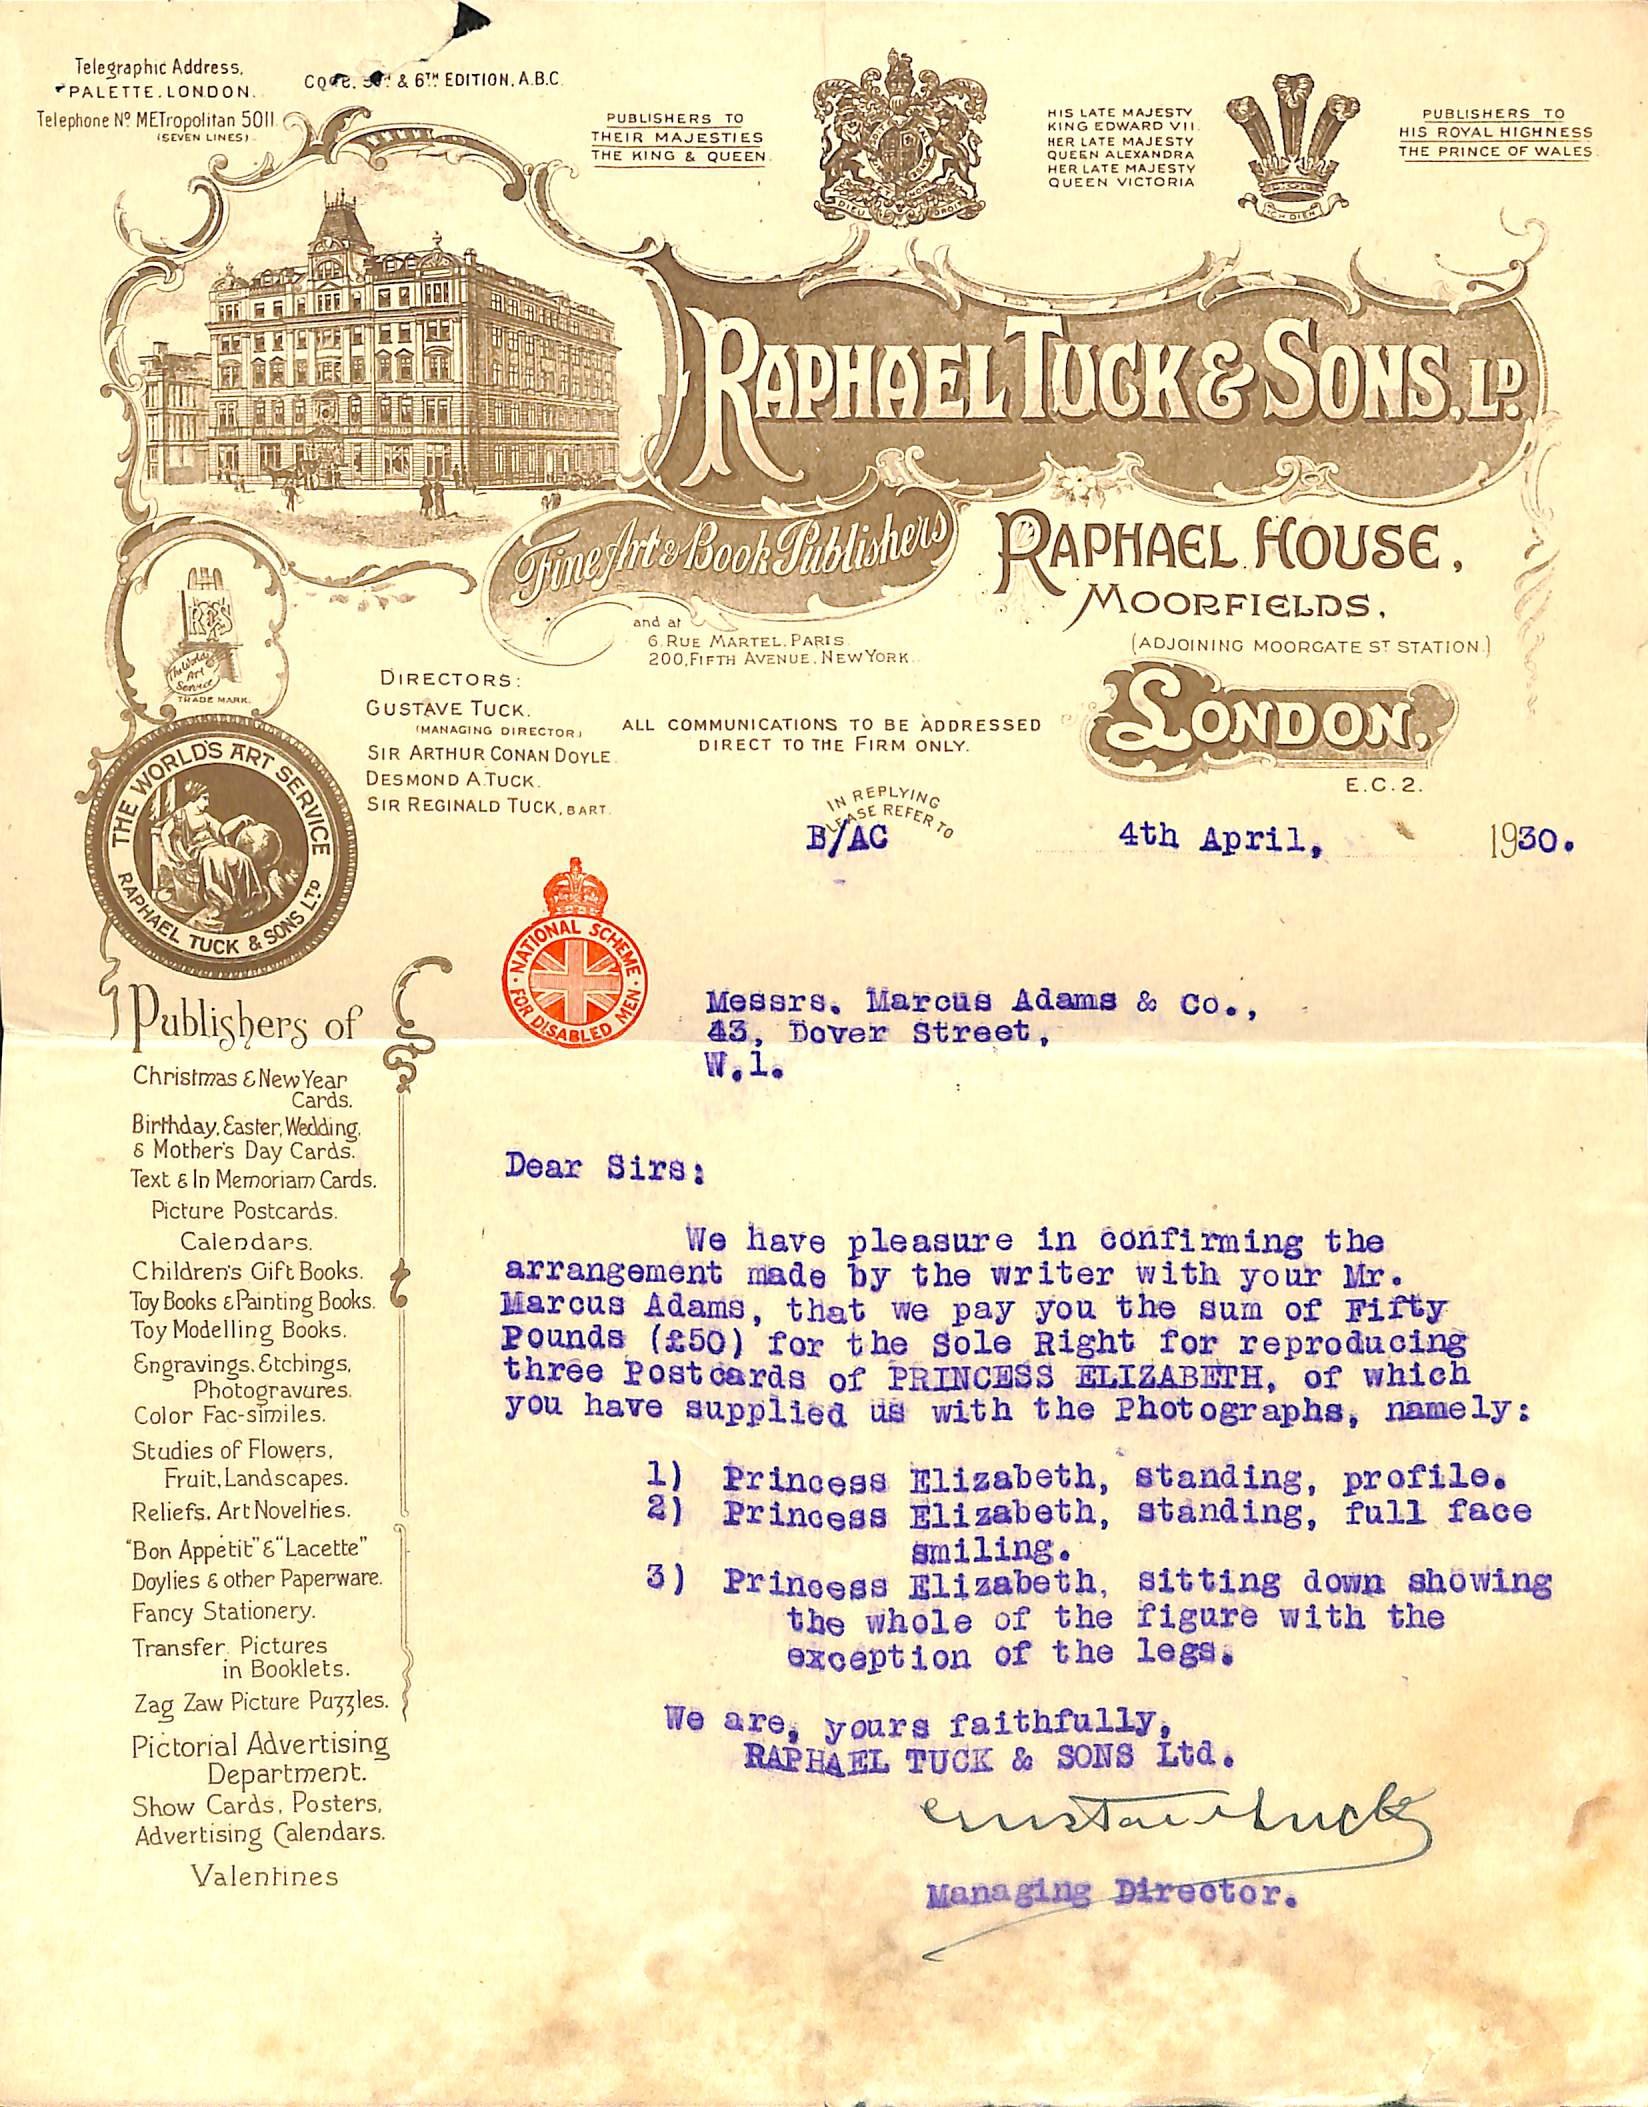 Telegraphic Address,
"PALETTE, LONDON.
Telephone Nº METropolitan 5011
(SEVEN LINES)
& 6TH EDITION, A.B.C.
PUBLISHERS TO
THEIR MAJESTIES
THE KING & QUEEN.
HIS LATE MAJESTY
KING EDWARD VII.
HER LATE MAJESTY
QUEEN ALEXANDRA
HER LATE MAJESTY
QUEEN VICTORIA
DIEU ET MON DROIT
ICH DIEN
PUBLISHERS TO
HIS ROYAL HIGHNESS
THE PRINCE OF WALES.
RAPHAEL TUCK & SONS, LD.
Fine Art & Book Publishers
RAPHAEL HOUSE,
MOORFIELDS,
(ADJOINING MOORGATE ST STATION.)
LONDON,
E.C.2.
and at
6, RUE MARTEL, PARIS.
200, FIFTH AVENUE, NEW YORK.
RTS
The World's
Art
Service
TRADE MARK.
THE WORLD'S ART SERVICE
RAPHAEL TUCK & SONS LTD
DIRECTORS:
GUSTAVE TUCK.
(MANAGING DIRECTOR)
SIR ARTHUR CONAN DOYLE.
DESMOND A. TUCK.
SIR REGINALD TUCK, BART.
ALL COMMUNICATIONS TO BE ADDRESSED
DIRECT TO THE FIRM ONLY.
IN REPLYING
PLEASE REFER TO
B/AC
4th April, 1930.
NATIONAL SCHEME
FOR DISABLED MEN
Messrs. Marcus Adams & Co.,
43, Dover Street,
W.1.
Dear Sirs:
We have pleasure in confirming the
arrangement made by the writer with your Mr.
Marcus Adams, that we pay you the sum of Fifty
Pounds (£50) for the Sole Right for reproducing
three Postcards of PRINCESS ELIZABETH, of which
you have supplied us with the Photographs, namely:
1) Princess Elizabeth, standing, profile.
2) Princess Elizabeth, standing, full face
smiling.
3) Princess Elizabeth, sitting down showing
the whole of the figure with the
exception of the legs.
We are, yours faithfully,
RAPHAEL TUCK & SONS Ltd.
Gustave Tuck
Managing Director.
Publishers of
Christmas & New Year
Cards.
Birthday, Easter, Wedding,
& Mother's Day Cards.
Text & In Memoriam Cards.
Picture Postcards.
Calendars.
Children's Gift Books.
Toy Books & Painting Books.
Toy Modelling Books.
Engravings, Etchings,
Photogravures.
Color Fac-similes.
Studies of Flowers,
Fruit, Landscapes.
Reliefs, Art Novelties.
"Bon Appetit" & "Lacette"
Doylies & other Paperware.
Fancy Stationery.
Transfer Pictures
in Booklets.
Zag Zaw Picture Puzzles.
Pictorial Advertising
Department.
Show Cards, Posters,
Advertising Calendars.
Valentines